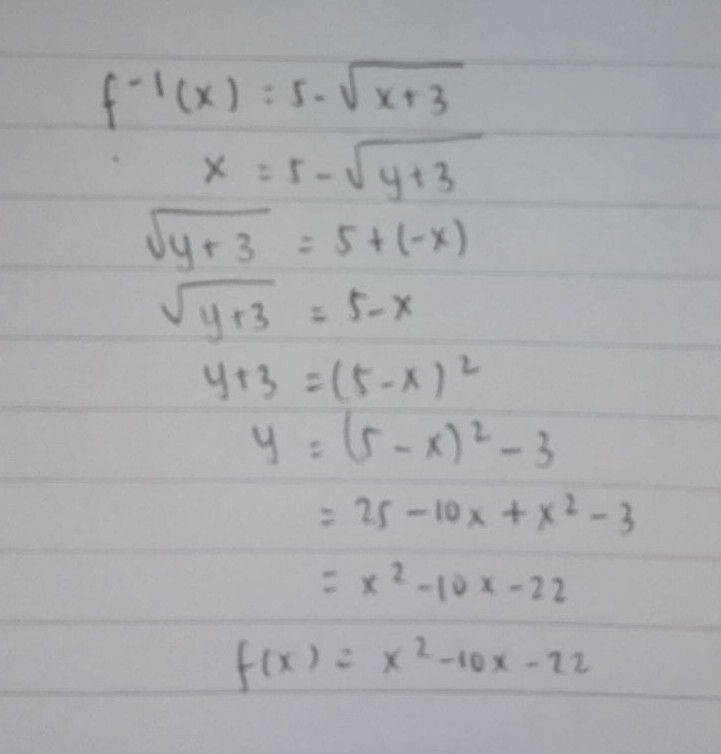 f⁻¹(x) = 5 - √(x+3)
x = 5 - √(y+3)
√(y+3) = 5 + (-x)
√(y+3) = 5 - x
y+3 = (5-x)²
y = (5-x)² - 3
= 25 - 10x + x² - 3
= x² - 10x - 22
f(x) = x² - 10x - 22